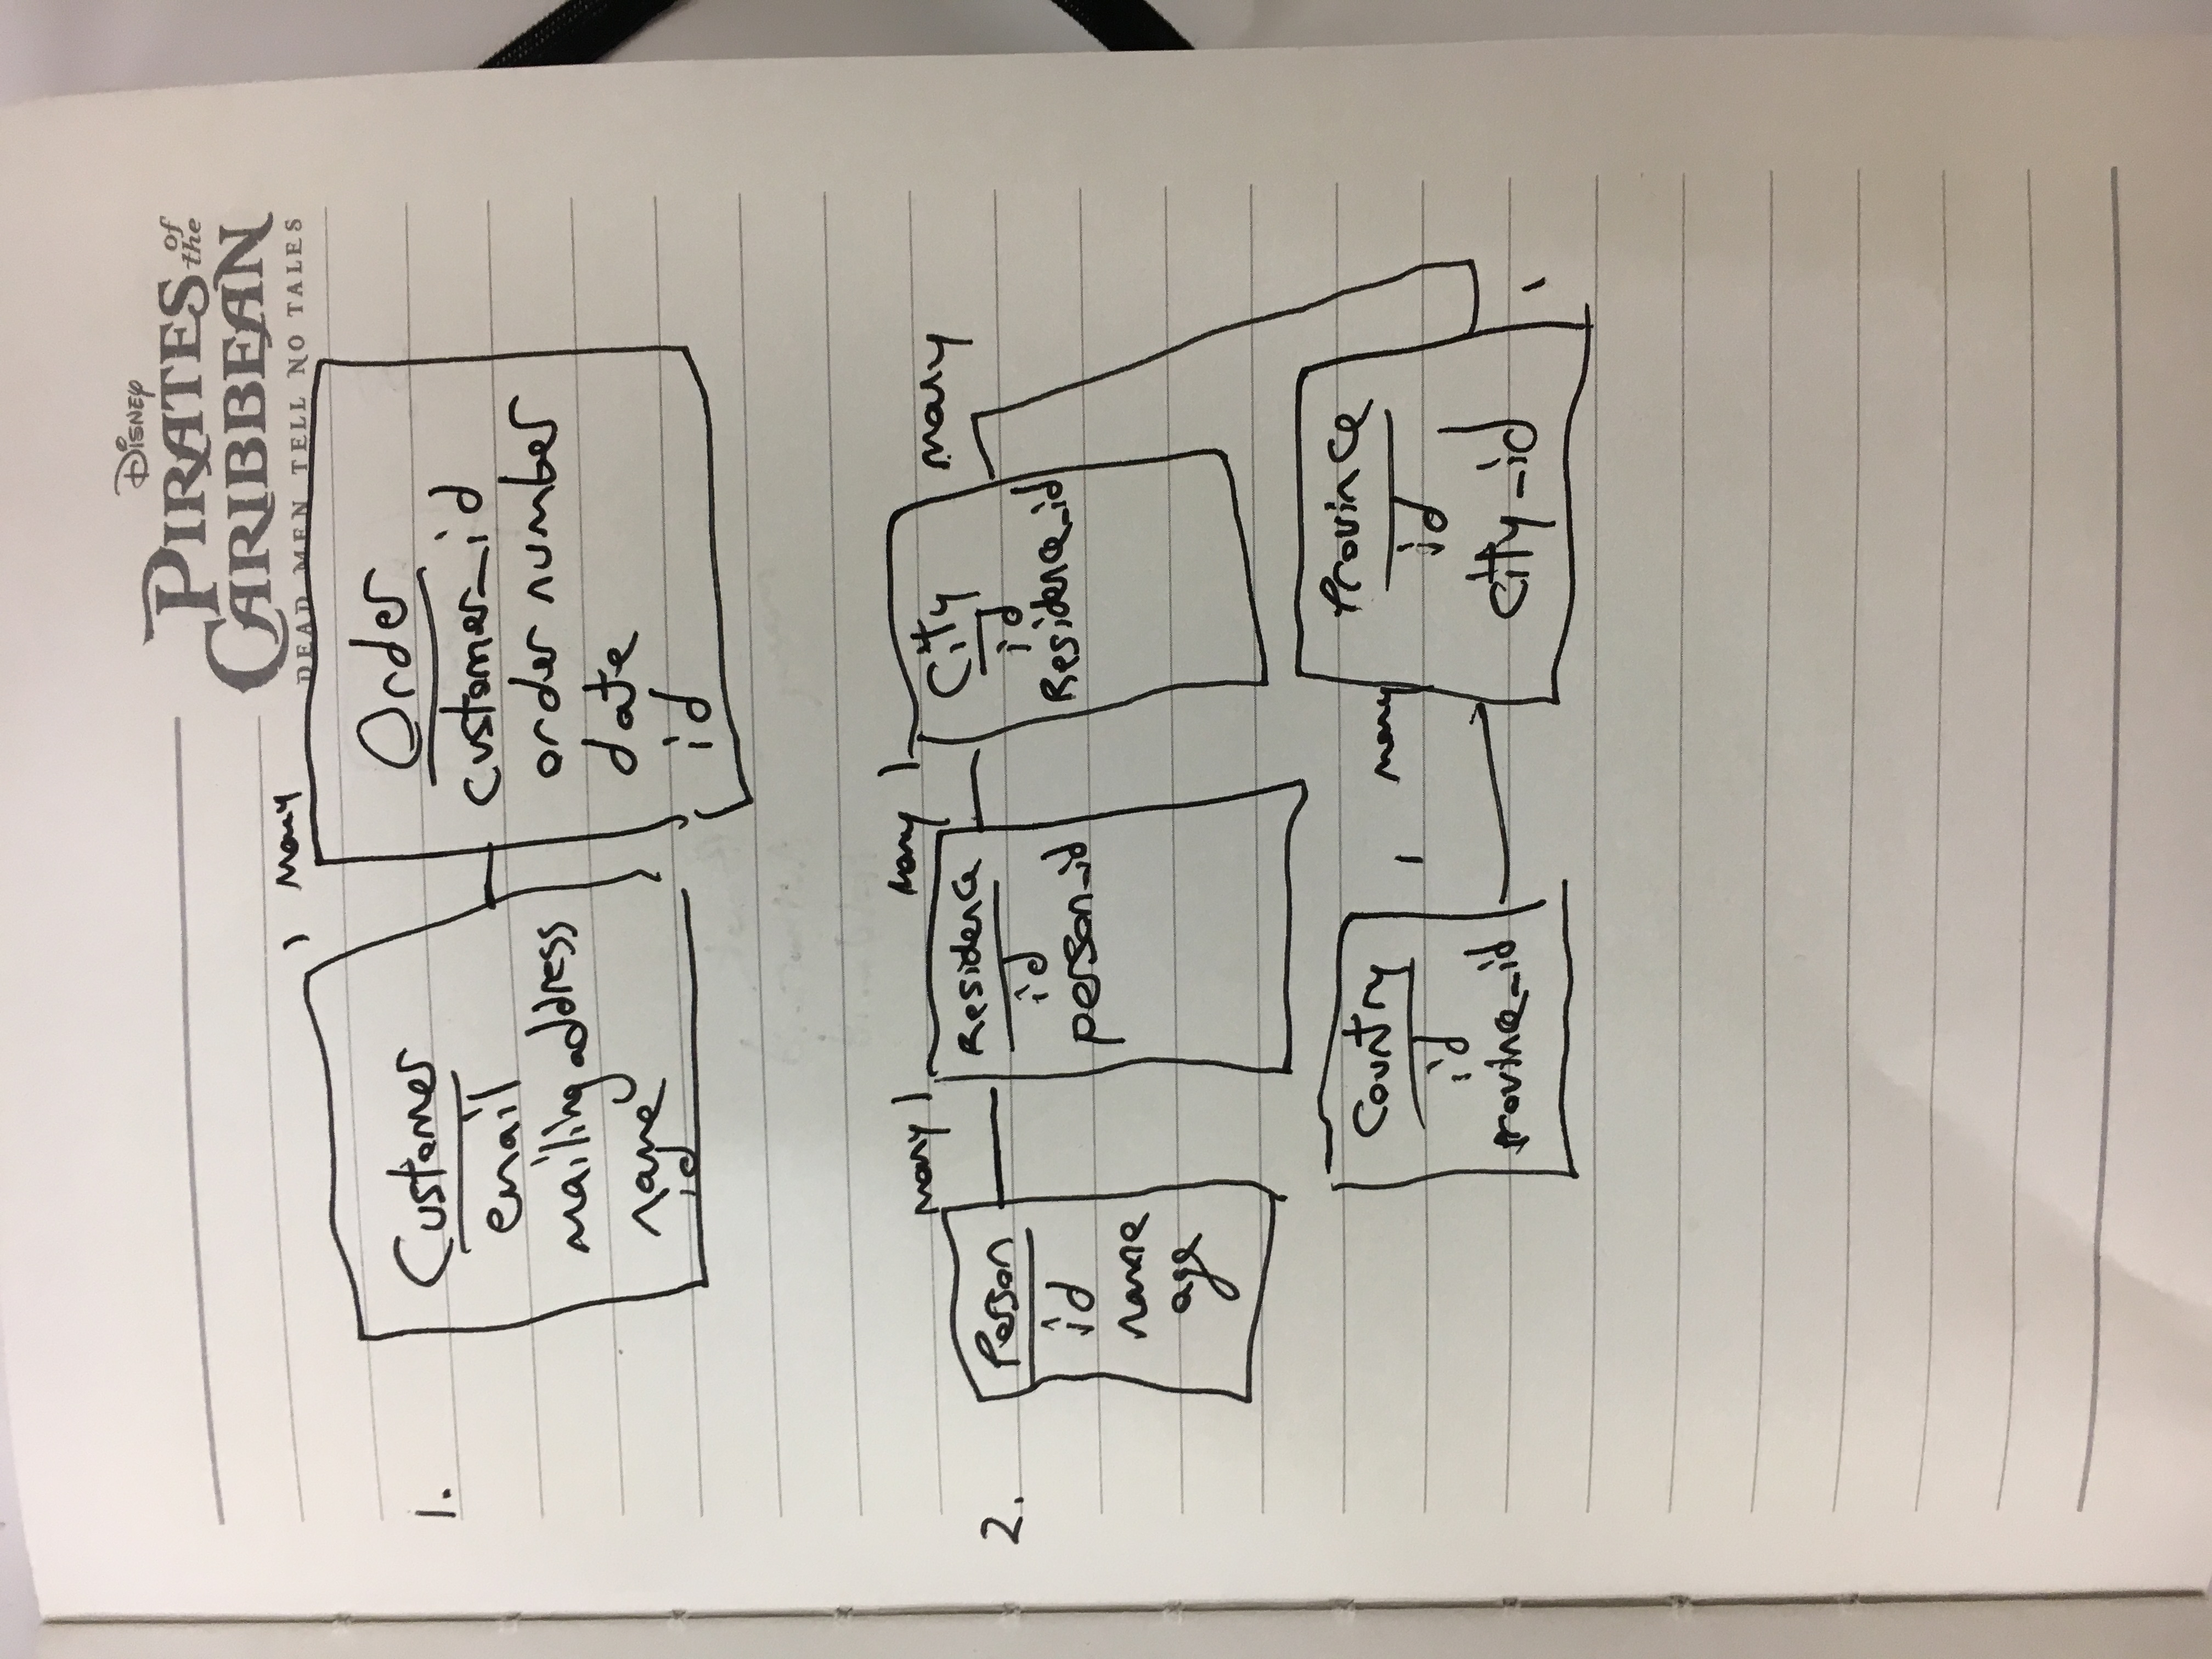 DISNEY
PIRATES of the
CARIBBEAN
DEAD MEN TELL NO TALES
1.
1 many
Customer
email
mailing address
name
id
Order
customer_id
order number
date
id
2.
many 1
many 1
many
Person
id
name
age
Residence
id
person_id
City
id
Residence_id
1 many
1
Country
id
Province_id
Province
id
City_id